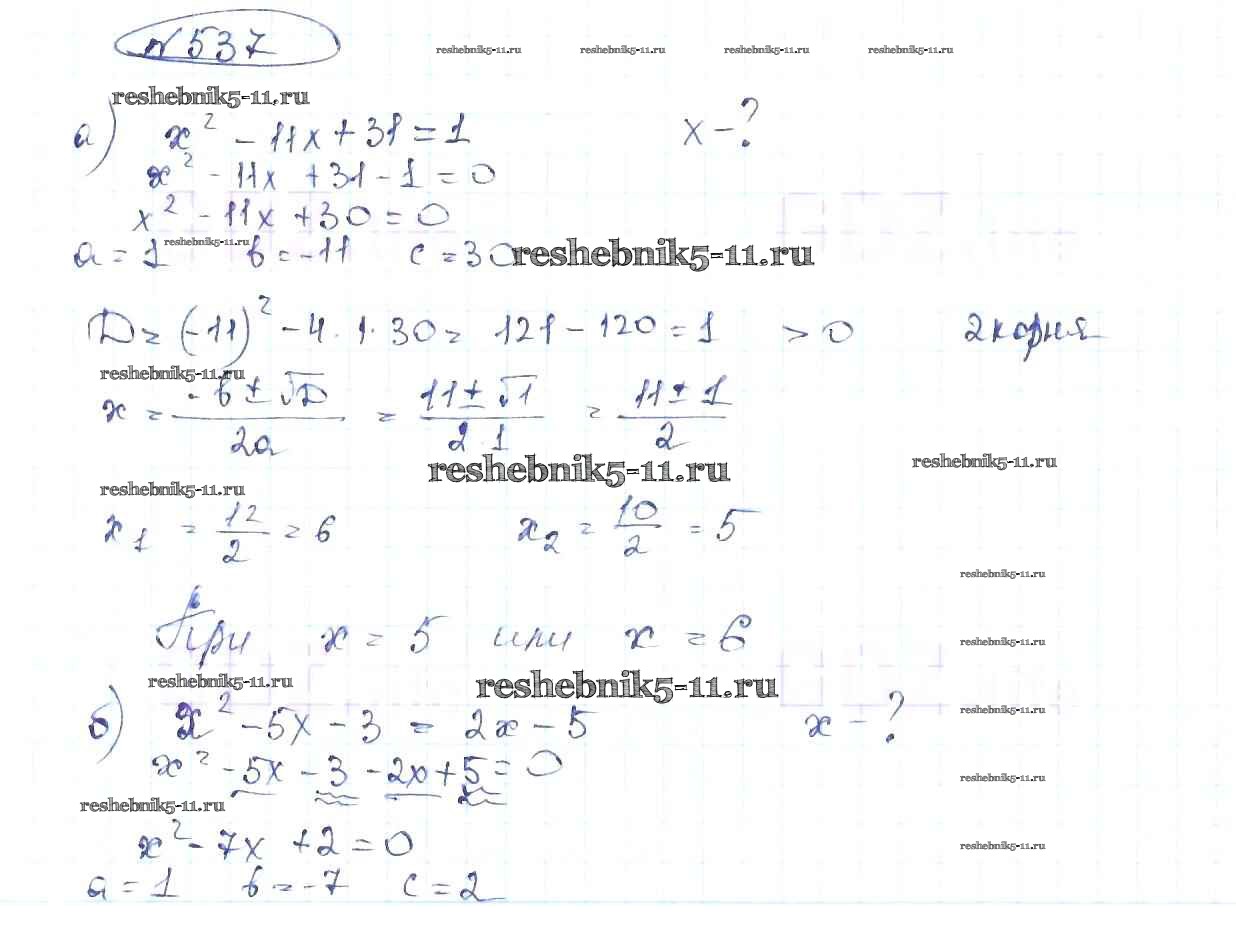 №537
reshebnik5-11.ru reshebnik5-11.ru reshebnik5-11.ru reshebnik5-11.ru
reshebnik5-11.ru
а) x² - 11x + 31 = 1 x - ?
x² - 11x + 31 - 1 = 0
x² - 11x + 30 = 0
reshebnik5-11.ru
a = 1 b = -11 c = 30
reshebnik5-11.ru
D = (-11)² - 4 · 1 · 30 = 121 - 120 = 1 > 0 2 корня
reshebnik5-11.ru
x = (-b ± √D)/(2a) = (11 ± √1)/(2·1) = (11 ± 1)/2
reshebnik5-11.ru reshebnik5-11.ru
reshebnik5-11.ru
x₁ = 12/2 = 6 x₂ = 10/2 = 5
reshebnik5-11.ru
При x = 5 или x = 6
reshebnik5-11.ru
reshebnik5-11.ru reshebnik5-11.ru
reshebnik5-11.ru
б) x² - 5x - 3 = 2x - 5 x - ?
x² - 5x - 3 - 2x + 5 = 0
reshebnik5-11.ru
reshebnik5-11.ru
x² - 7x + 2 = 0
reshebnik5-11.ru
a = 1 b = -7 c = 2